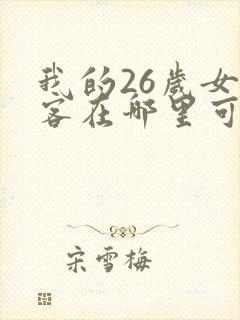 我的26歲女
客在哪里可
宋雪梅